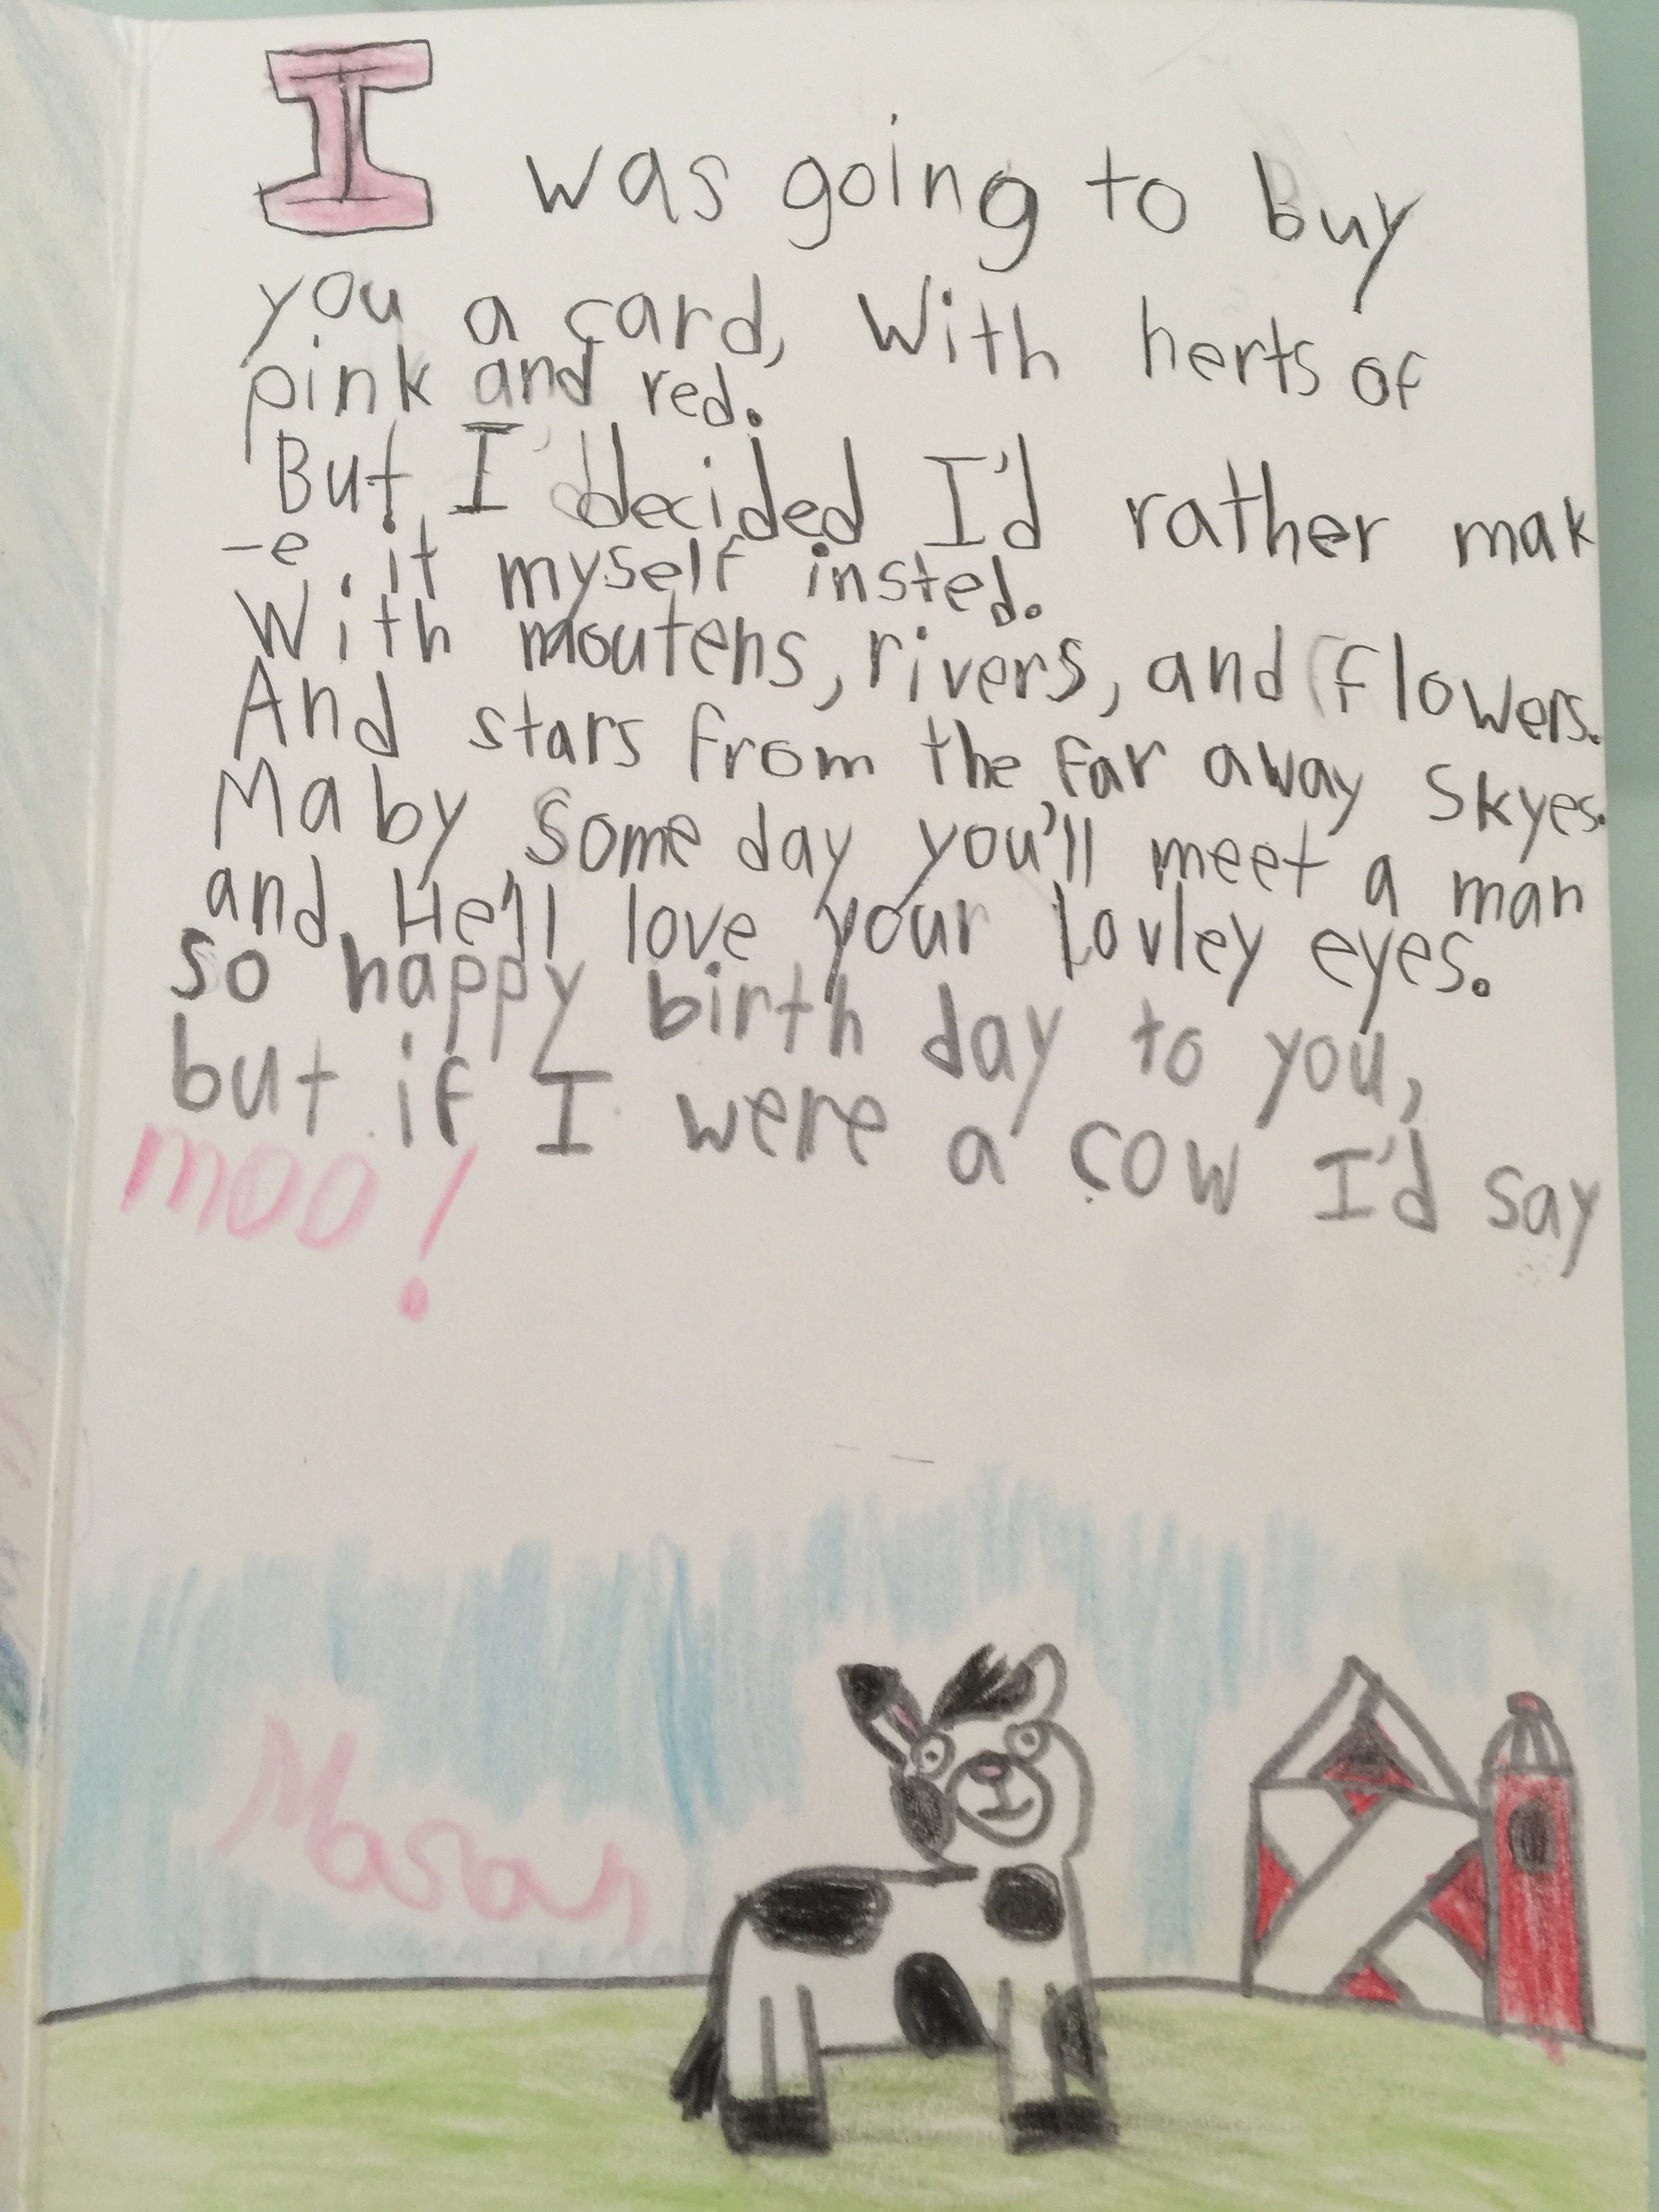 I was going to buy
you a card, With herts of
pink and red.
But I decided I'd rather mak
-e it myself insted.
With moutens, rivers, and flowers.
And stars from the far away skyes.
Maby some day you'll meet a man
and He'll love your Lovley eyes.
so happy birth day to you,
but if I were a cow I'd say
moo!